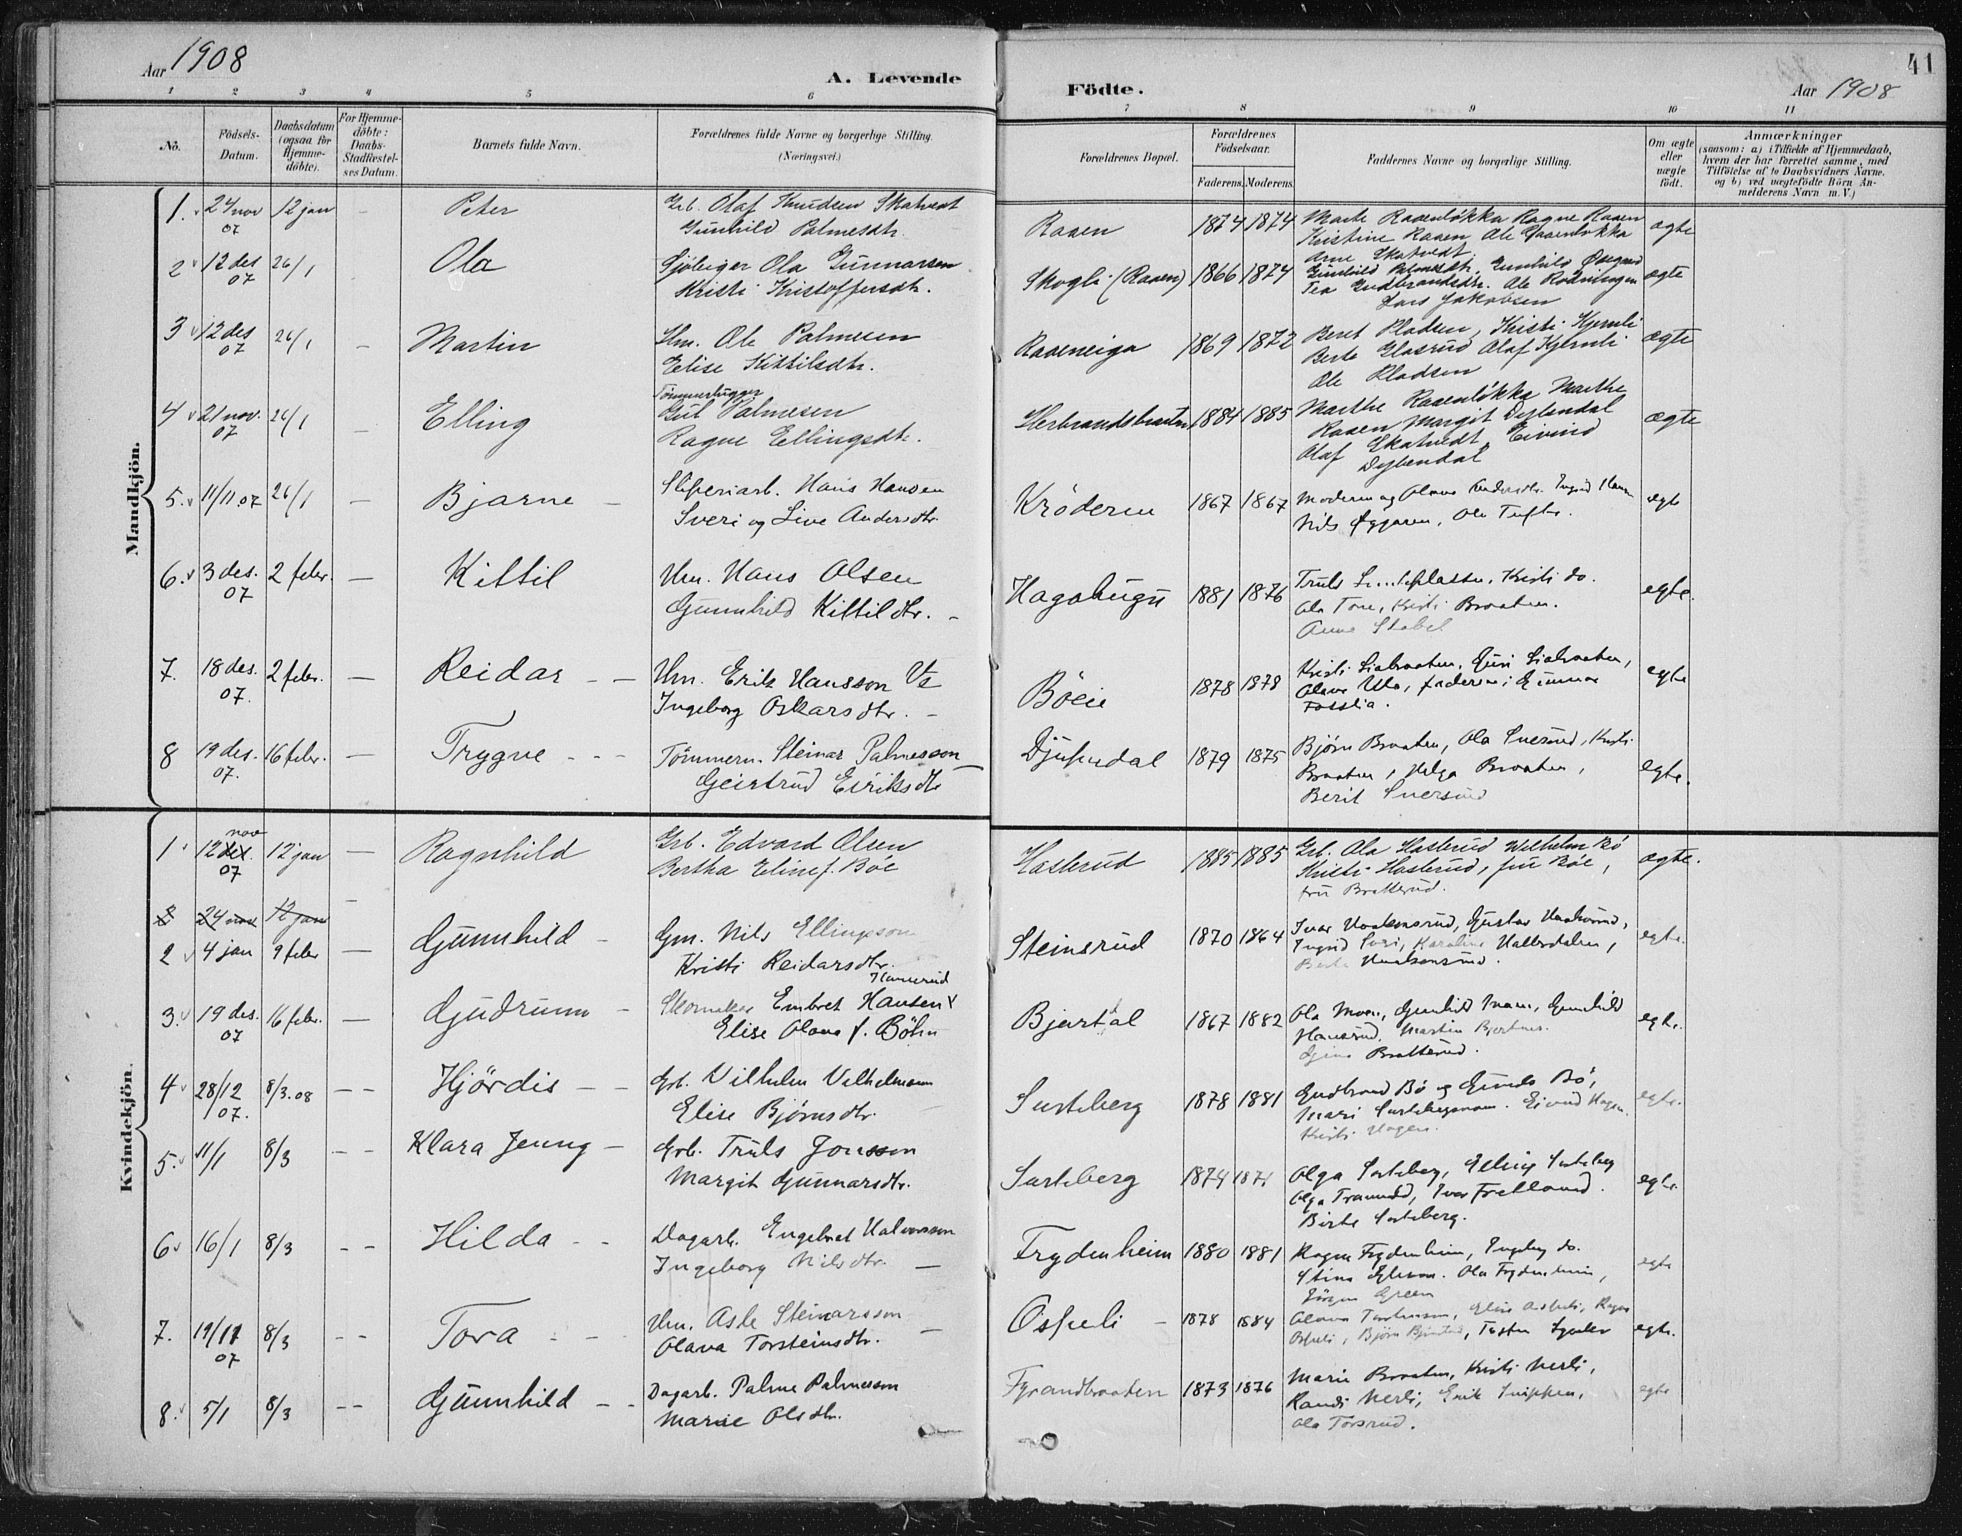 Aar 1908
A. Levende
Födte.
Aar 1908
41
1 2 3 4 5 6 7 8 9 10 11
No.
Födsels-Datum.
Daabsdatum (ogsaa for Hjemme-döbte).
For Hjemme-döbte: Daabs-Stadfæstel-ses Datum.
Barnets fulde Navn.
Forældrenes fulde Navne og borgerlige Stilling. (Næringsvei.)
Forældrenes Bopæl.
Forældrenes Födselsaar.
Faderens. Moderens.
Faddernes Navne og borgerlige Stilling.
Om ægte eller uægte födt.
Anmærkninger
(saasom: a) i Tilfælde af Hjemmedaab, hvem der har forrettet samme, med Tilföielse af to Daabsvidners Navne. og b) ved uægtefödte Börn An-melderens Navn m. V.)
Mandkjön.
1. 24 nov 07 12 jan – Peter
Grb. Olaf Knudsen Skatvedt
Gunhild Palmesdtr.
Raaen 1874 1874
Marte Raaenløkka Ragne Raaen
Kristine Raaen Ole Raaenløkka
Arne Skatvedt
ægte
2 12 des 07 26/1 Ola
Ola Gunnarsen
Kristi Kristoffersdtr.
Skogli (Raaen) 1866 1874
Gunhild Palmesdtr. Gunhild
Tea Gudbrandsdtr. Ole
Lars Jakobsen
ægte
3 12 des 07 26/1 – Martin
Hm. Ole Palmesen
Elise Kittilsdtr.
Raaeneiga 1869 1872
Beret Pladsen, Kristi Kjernli
Berte Glasrud Olaf Kjernli
Ole Pladsen
ægte
4 21 nov. 07 26/1 – Elling
Tømmerhugger
Gul Palmesen
Ragne Ellingsdtr.
Herbrandsbraaten 1884 1885
Marthe Raaenløkka Marthe
Raaen Margit Dybendal
Olaf Skatvedt, Eivind
Dybendal
ægte
5. 11/11.07 26/1 – Bjarne –
Sliperiarb. Hans Hansen
Sveri og Live Andersdtr.
Kröderen 1867 1867
Moderen og Olava Andersdtr. Ingrid
Nils Ole Tufte.
egte
6. 3 des. 07 2 febr. – Kittil
Hm. Hans Olsen
Gunnhild Kittilsdtr. –
Hagahugu 1881 1876
Truls Kristi do.
Ola Kristi Braaten.
Anne Stabel
egte.
7. 18 des. 07. 2 febr. – Reidar – –
Hm. Erik Hansson
Ingeborg Oskarsdtr. –
Böeie 1878 1878
Kristi Liabraaten, Guri Liabraaten,
Olava faderen, Gunnar
Fosslia.
egte
8 19 des. 07. 16 febr. – Trygve – – –
Tömmerm. Steinar Palmesson –
Geirtrud Eiriksdtr
Djupedal 1879 1875
Björn Braaten, Ola Snersrud, Kristi
Braaten, Helga Braaten,
Berit Snersrud
egte.
Kvindekjön.
1 12 nov 07 12 jan – Ragnhild
Grb. Edvard Olsen
Bertha Eline f. Böe
Hasterud 1885 1885
Grb. Ola Hasterud Wilhelm Bö
Kristi Hasterud, fru Böe,
fru Bratterud.
ægte.
2 24 nov 12 jan
2 4 jan 9 febr Gunnhild –
Gm. Nils Ellingsson
Kristi Reidarsdtr.
Steinsrud 1870 1864
Ivar Gustav
Ingrid Karoline
Berta
egte.
3. 19 des. 07 16 febr. – Gudrunn –
Hamrud
Skomaker Embret Hansen
Elise Olava f. Böhn
Bjertal 1867 1882
Ola Moen, Gunhild Gunhild
Martin
Bratterud.
egte.
4 28/12 07. 8/3.08 – – Hjördis – –
Grb. Vilhelm Vilhelmsen
Elise Björnsdtr.
Surteberg 1878 1881
Gudbrand Bö og Gunda Bö,
Mari Eivind Hagen.
Kristi Hagen.
egte.
5. 11/1 8/3 – – Klara Jenny –
Grb. Truls Jonsson
Margit Gunnarsdtr.
Surteberg 1874 1871
Olga Surteberg, Elling Surteberg
Olga Ivar
Birte Surteberg.
egte.
6 16/1 8/3 – – Hilda – –
Dagarb. Engebret Halvorsson
Ingeborg Nilsdtr. –
Frydenheim 1880 1881
Ragna Frydenheim, Ingeborg do.
Stina Ola Frydenheim,
Jörgen Green
egte
7. 19/11 07 8/3 – – Tora – –
Hm. Asle Steinarsson
Olava Torsteinsdtr. –
Ospeli – 1878 1884
Olava
Ospeli, Björn
egte.
8. 5/1 8/3 – – Gunnhild – –
Dagarb. Palme Palmesson
Marie Olsdtr.
Fyrandbraaten 1873 1876
Marie Braaten, Kristi Nerli,
Randi Nerli, Erik Snippen,
Ola Torsrud.
egte